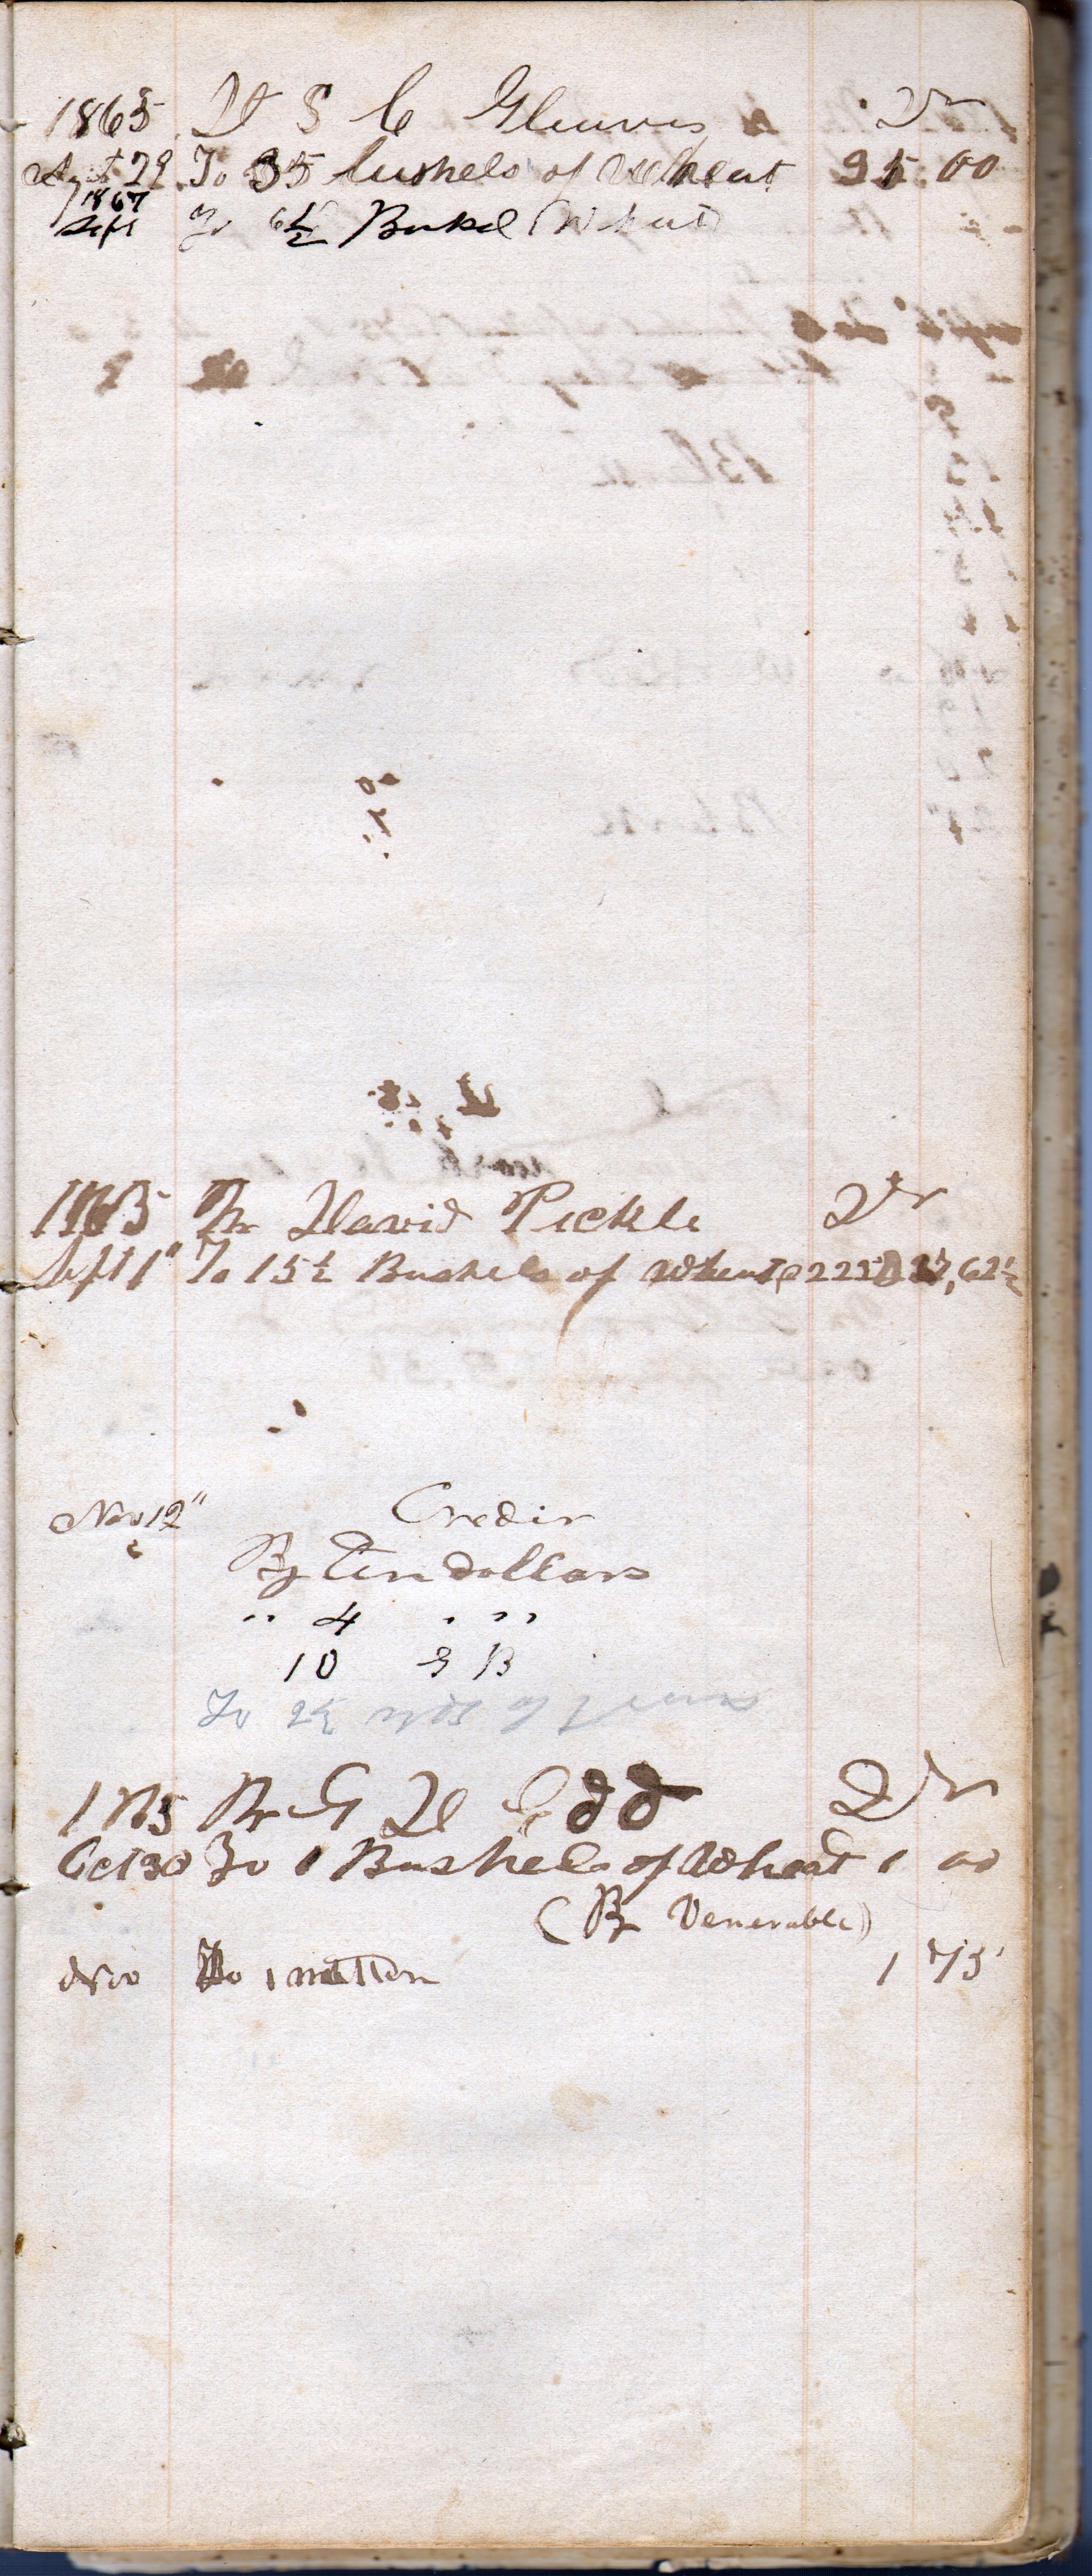 1865 S C Gleaves Dr
Agust 29 To 35 bushels of Wheat 35 00
1867
Sept To 6 1/2 Bushel Wheat
1865 Mr David Pickle Dr
Sept 1" To 15 1/2 Bushels of Wheat @ 225 ,62 1/2
Nov 12" Credit
By Ten dollars
" 4 " "
10
To 2 1/2 yds of Jeans
1865 Mr Dr
Oct 30 To 1 Bushels of Wheat 1 00
(By Venerable)
Nov To 1 mutton 1 75